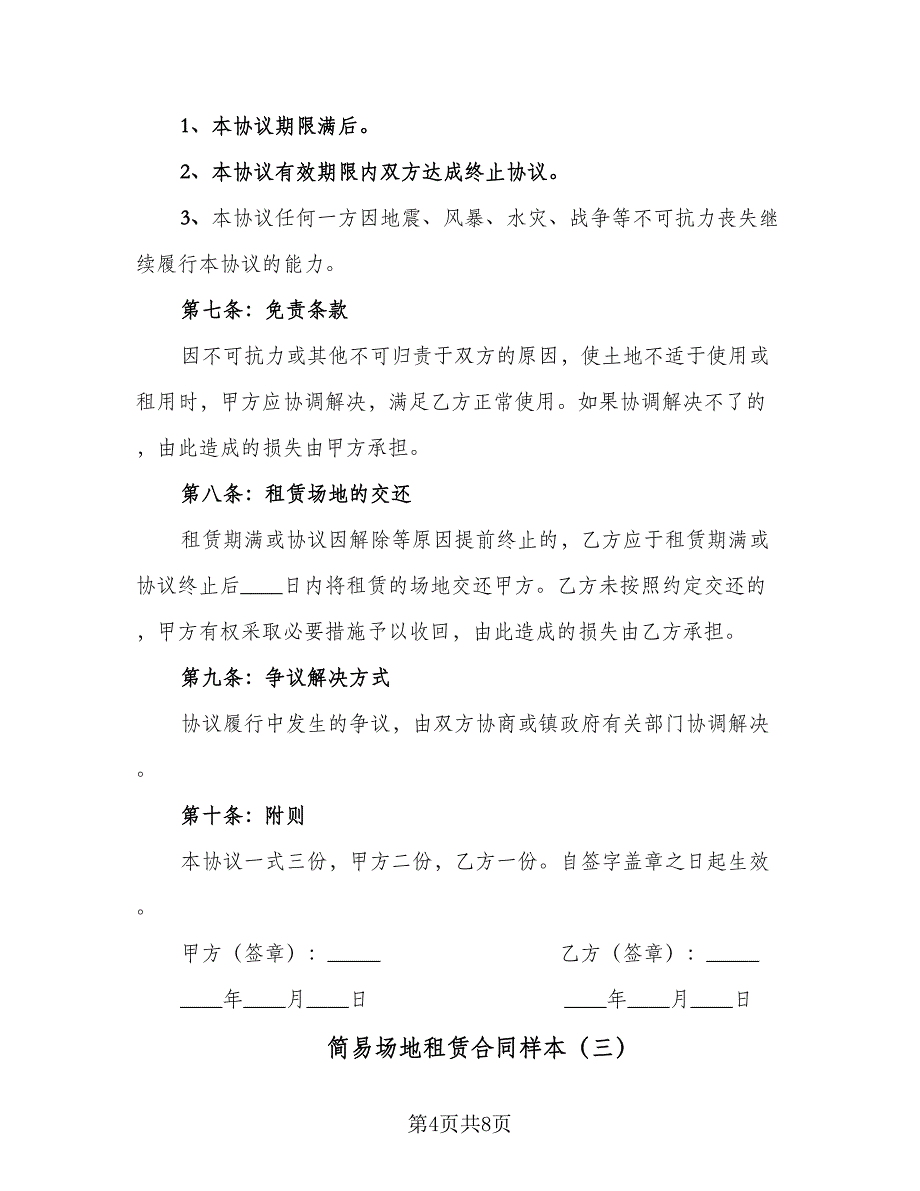 1、本协议期限满后。
2、本协议有效期限内双方达成终止协议。
3、本协议任何一方因地震、风暴、水灾、战争等不可抗力丧失继
续履行本协议的能力。
第七条：免责条款
因不可抗力或其他不可归责于双方的原因，使土地不适于使用或
租用时，甲方应协调解决，满足乙方正常使用。如果协调解决不了的
，由此造成的损失由甲方承担。
第八条：租赁场地的交还
租赁期满或协议因解除等原因提前终止的，乙方应于租赁期满或
协议终止后____日内将租赁的场地交还甲方。乙方未按照约定交还的
，甲方有权采取必要措施予以收回，由此造成的损失由乙方承担。
第九条：争议解决方式
协议履行中发生的争议，由双方协商或镇政府有关部门协调解决
。
第十条：附则
本协议一式三份，甲方二份，乙方一份。自签字盖章之日起生效
。
甲方（签章）：_____ 乙方（签章）：_____
____年____月____日 ____年____月____日
简易场地租赁合同样本（三）
第4页共8页